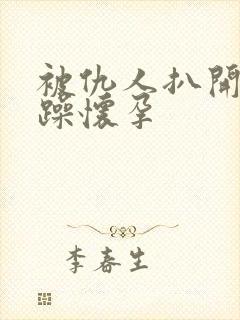 被仇人扒開
躁懷孕
李春生